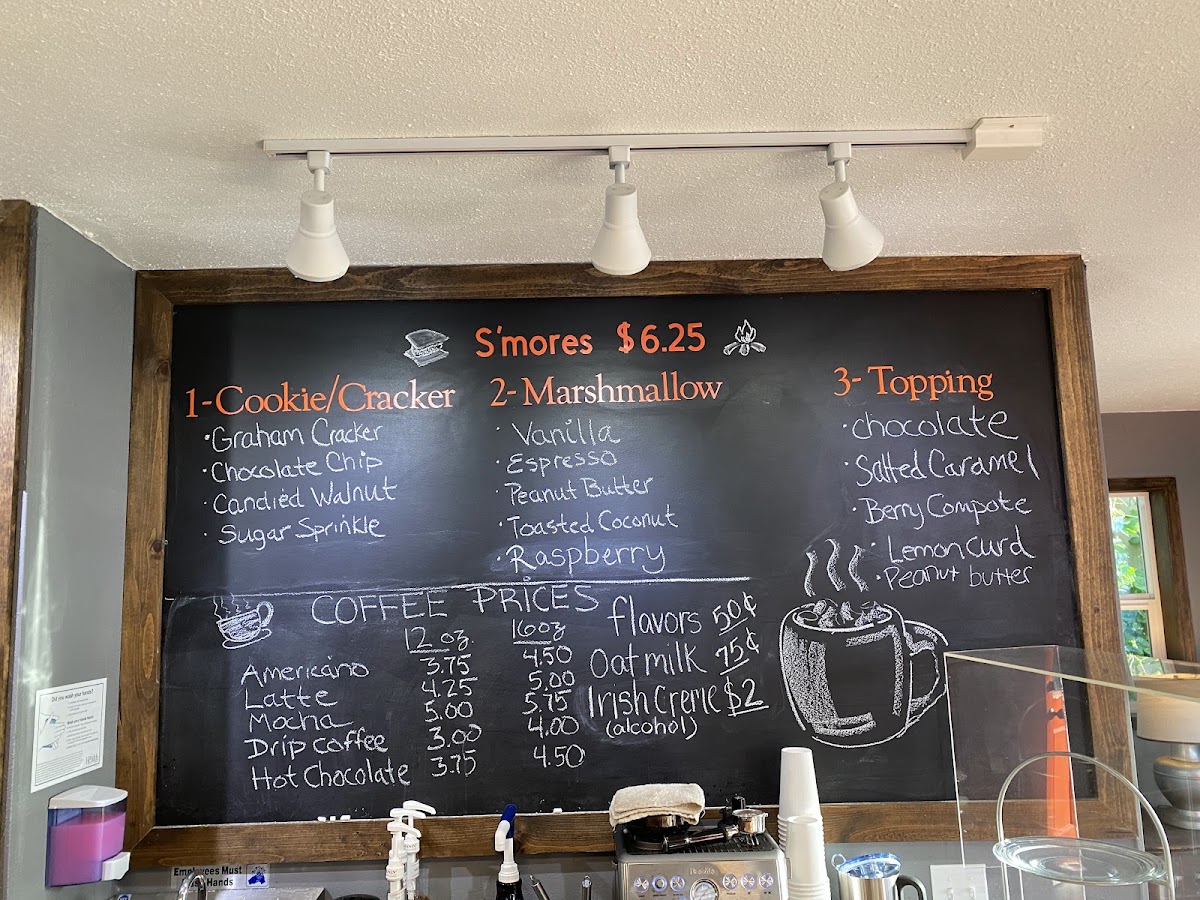 S'mores $6.25
1-Cookie/Cracker
• Graham Cracker
• Chocolate Chip
• Candied Walnut
• Sugar Sprinkle
2-Marshmallow
• Vanilla
• Espresso
• Peanut Butter
• Toasted Coconut
• Raspberry
3-Topping
• chocolate
• Salted Caramel
• Berry Compote
• Lemon curd
• Peanut butter
COFFEE PRICES
12 oz 16oz
Americano 3.75 4.50
Latte 4.25 5.00
Mocha 5.00 5.75
Drip coffee 3.00 4.00
Hot Chocolate 3.75 4.50
flavors 50¢
Oatmilk 75¢
Irish Creme $2
(alcohol)
Did you wash your hands?
Employees Must
Hands